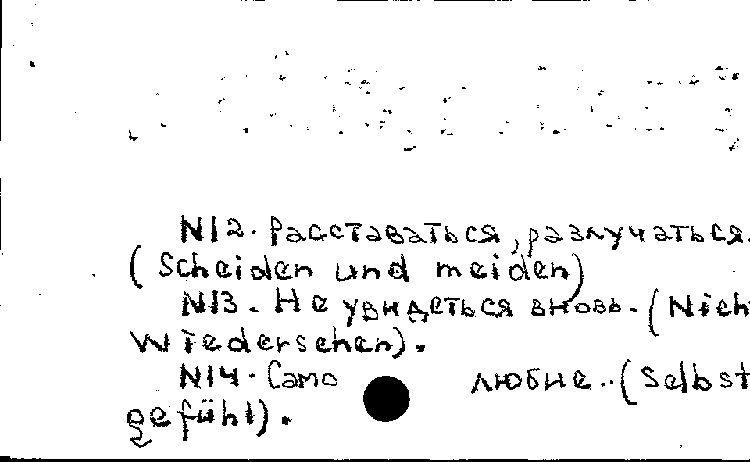 N12. Расставаться, разлучаться.
(Scheiden und meiden)
N13. Не увидеться вновь. (Nich
Wiedersehen).
N14. Само любие..(Selbst
gefühl).